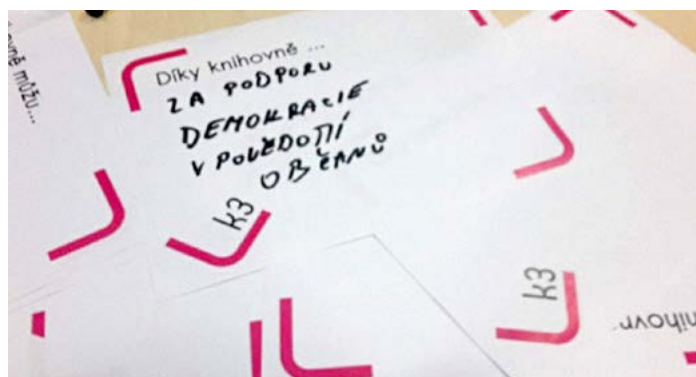 Díky knihovně ...
ZA PODPORU
DEMOKRACIE
V POVĚDOMÍ
OBČANŮ
k3
můžu...
k3